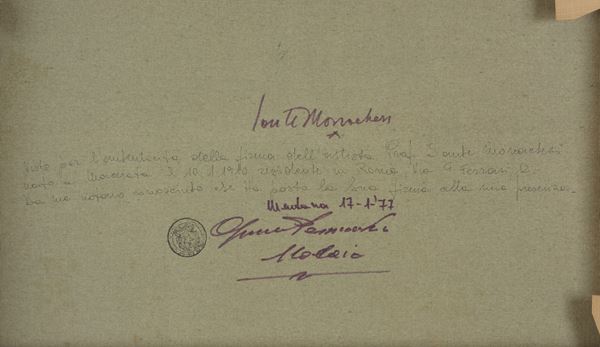 Sante Monachesi
Visto per l'autenticità della firma dell'artista Prof. Sante Monachesi
nato a Macerata il 10.1.1910 residente in Roma Via G Ferrari 2
Da me notaro conosciuto che ha posto la sua firma alla mia presenza.
Mentana 17-1-'77
Notaio